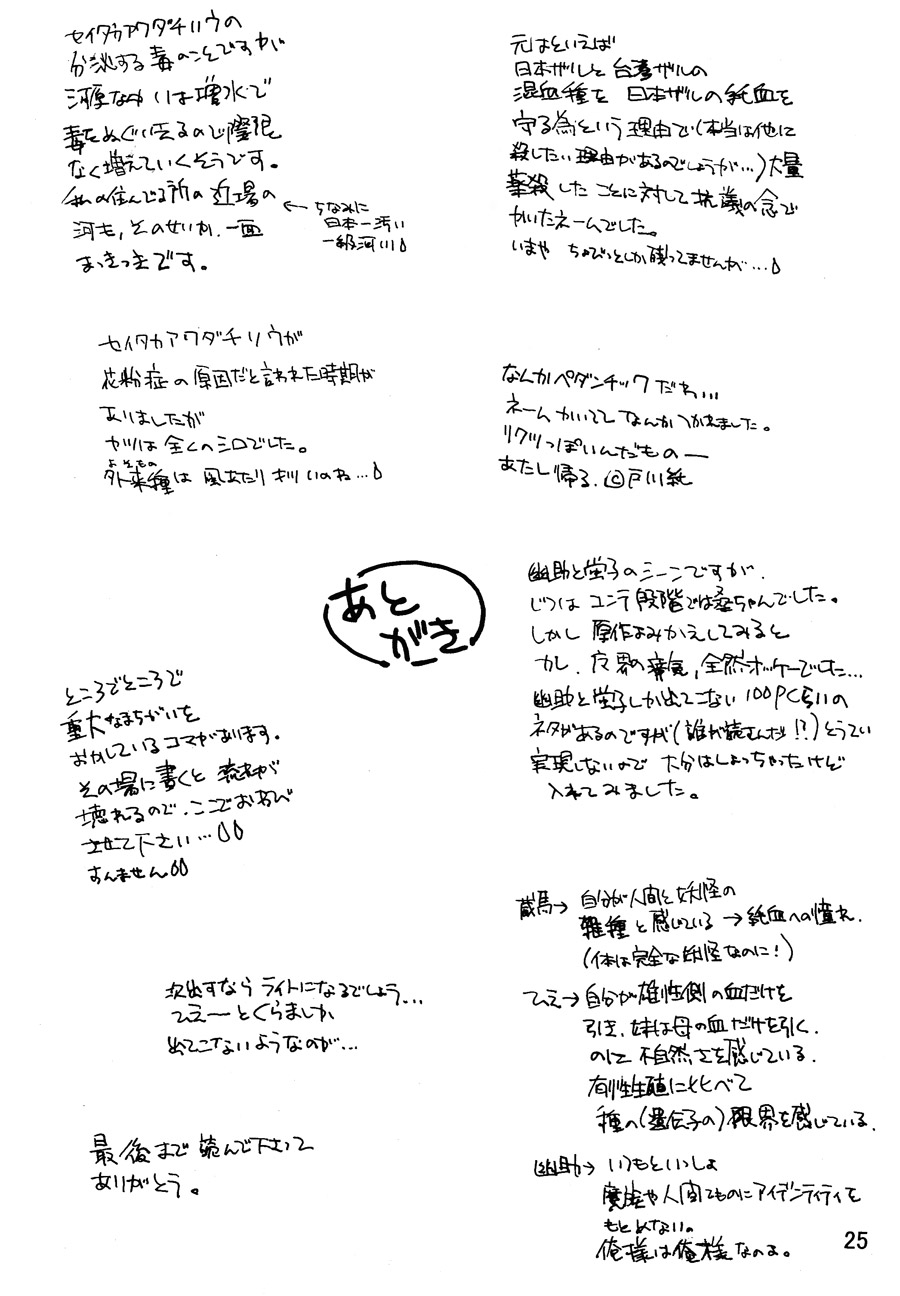 元はといえば
日本ザルと台湾ザルの
混血種を 日本ザルの純血を
守る為という理由で(本当は他に
殺したい理由があるのでしょうが…)大量
薬殺したことに対して抗議の念で
かいたネームでした。
いまや ちょびっとしか残ってませんが…
なんかペダンチックだわ…
ネームかいてて なんかつかれました。
リクツっぽいんだもの―
あたし帰る。©戸川純
あと
がき
幽助と蛍子のシーンですが、
じつは コンテ段階では桑ちゃんでした。
しかし 原作よみかえしてみると
全然オッケーでした…
幽助と蛍子しか出てこない100Pくらいの
ネタがあるのですが(誰が読むんだ!?)とうてい
実現しないので 大分はしょっちゃったけど
入れてみました。
蔵馬→ 自分が人間と妖怪の
雑種と感じている →純血への憧れ.
(体は完全な妖怪なのに!)
ひえ→自分が雄性側の血だけを
引き、妹は母の血だけを引く.
のに 不自然さを感じている.
有性生殖に比べて
種の(遺伝子の)限界を感じている.
幽助→ いつもといっしょ
魔族や人間てものにアイデンティティを
もとめない。
俺様は俺様なのよ。
セイタカアワダチソウの
分泌する毒のことですが
河原なんかは増水で
毒をぬぐい去るので際限
なく増えていくそうです。
私の住んでる所の近場の
河も、そのせいか、一面
まっきっきです。
←ちなみに
日本一汚い
一級河川
セイタカアワダチソウが
花粉症の原因だと言われた時期が
ありましたが
ヤツは全くのシロでした。
よそもの
外来種は 風あたりキツいのね…
ところでところで
重大なまちがいを
おかしているコマがあります。
その場に書くと 流れが
壊れるので、ここでおわび
させて下さい…
すんません
次出すなら ライトになるでしょう…
ひえーとくらましか
出てこないようなのが…
最後まで 読んで下さって
ありがとう。
25